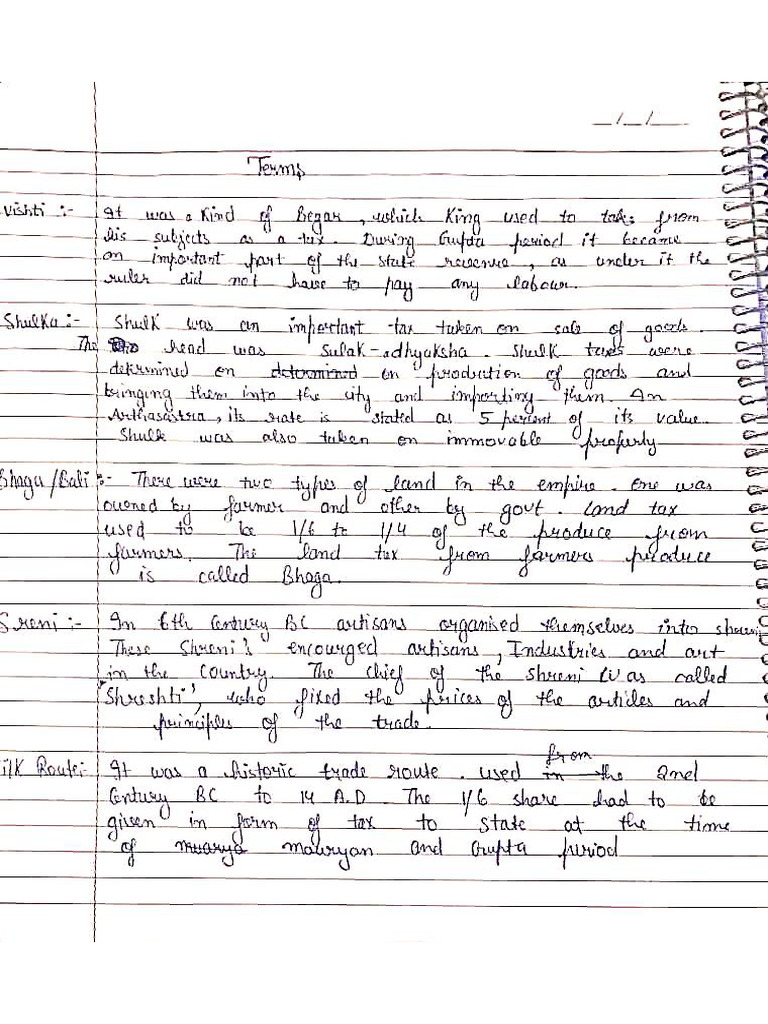 _/_/_
Terms
Vishti :- It was a Kind of Begar, which King used to take from
his subjects as a tax. During Gupta period it became
an important part of the state revenue, as under it the
ruler did not have to pay any labour.
Shulka :- Shulk was an important tax taken on sale of goods.
The head was Sulak-adhyaksha. Shulk taxes were
determined on determined on production of goods and
bringing them into the city and importing them. In
Arthasastra, its rate is stated as 5 percent of its value.
Shulk was also taken on immovable property
Bhaga/Bali :- There were two types of land in the empire. One was
owned by farmer and other by govt. Land tax
used to be 1/6 to 1/4 of the produce from
farmers. The land tax from farmers produce
is called Bhaga.
Sreni :- In 6th Century BC artisans organised themselves into shreni
These Shreni's encourged artisans, Industries and art
in the country. The chief of the shreni was called
'Shreshti', who fixed the prices of the articles and
principles of the trade.
ilk Route:- It was a historic trade route. used in from the 2nd
Century BC to 14 A.D. The 1/6 share had to be
given in form of tax to state at the time
of muarya mauryan and Gupta period